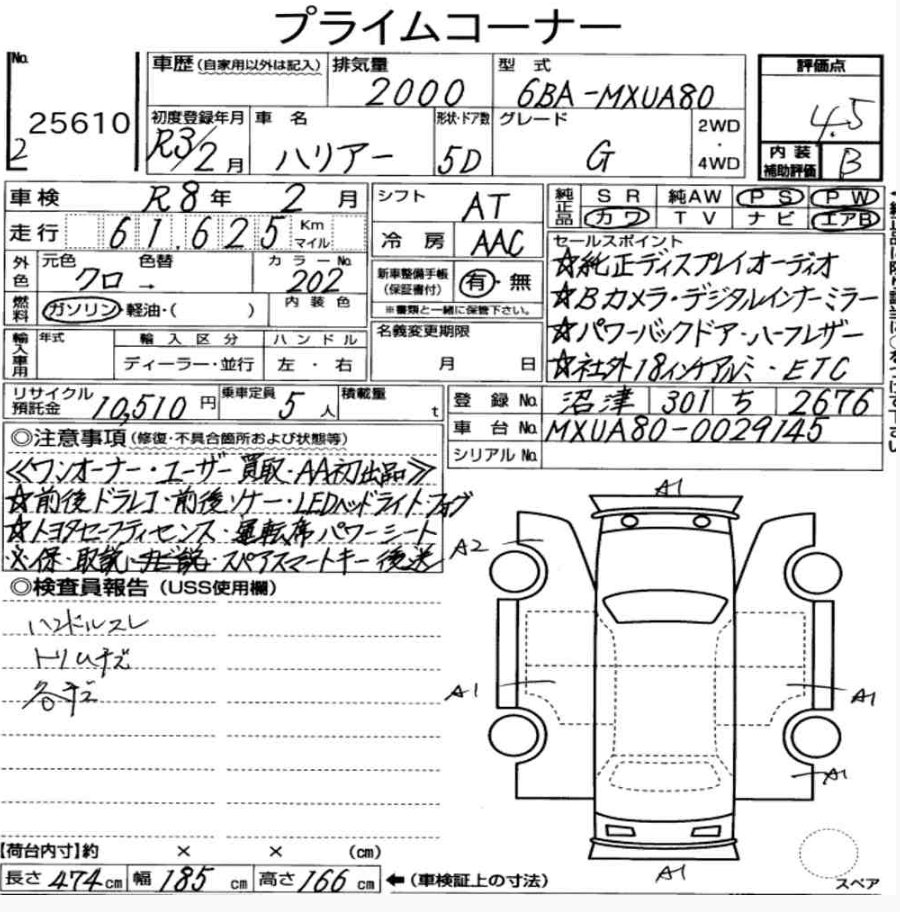 プライムコーナー
No. 25610
2
車歴 (自家用以外は記入)
排気量 2000
型式 6BA-MXUA80
評価点 4.5
初度登録年月 R3/2月
車名 ハリアー
形状・ドア数 5D
グレード G
2WD・4WD
内装補助評価 B
車検 R8年 2月
シフト AT
純正品 SR 純AW PS PW
カワ TV ナビ エアB
走行 61,625 Km マイル
冷房 AAC
セールスポイント
☆純正ディスプレイオーディオ
☆Bカメラ・デジタルインナーミラー
☆パワーバックドア・ハーフレザー
☆社外18インチアルミ・ETC
外色 元色 クロ → 色替
カラーNo. 202
新車整備手帳(保証書付) 有・無
※書類と一緒に保管下さい。
燃料 ガソリン・軽油・( )
内装色
名義変更期限 月 日
輸入車用 年式 輸入区分 ハンドル
ディーラー・並行 左・右
リサイクル預託金 10,510円
乗車定員 5人
積載量 t
登録No. 沼津 301 ち 2676
車台No. MXUA80-0029145
シリアルNo.
◎注意事項 (修復・不具合箇所および状態等)
≪ワンオーナー・ユーザー買取・AA初出品≫
☆前後ドラレコ・前後ソナー・LEDヘッドライト・フォグ
☆トヨタセーフティセンス・運転席パワーシート
※保・取説・ナビ説・スペアスマートキー後送
◎検査員報告 (USS使用欄)
ハンドルスレ
トリムキズ
各キズ
A1
A2
A1
A1
A1
A1
【荷台内寸】約 × × (cm)
長さ 474cm 幅 185cm 高さ 166cm ←(車検証上の寸法)
スペア